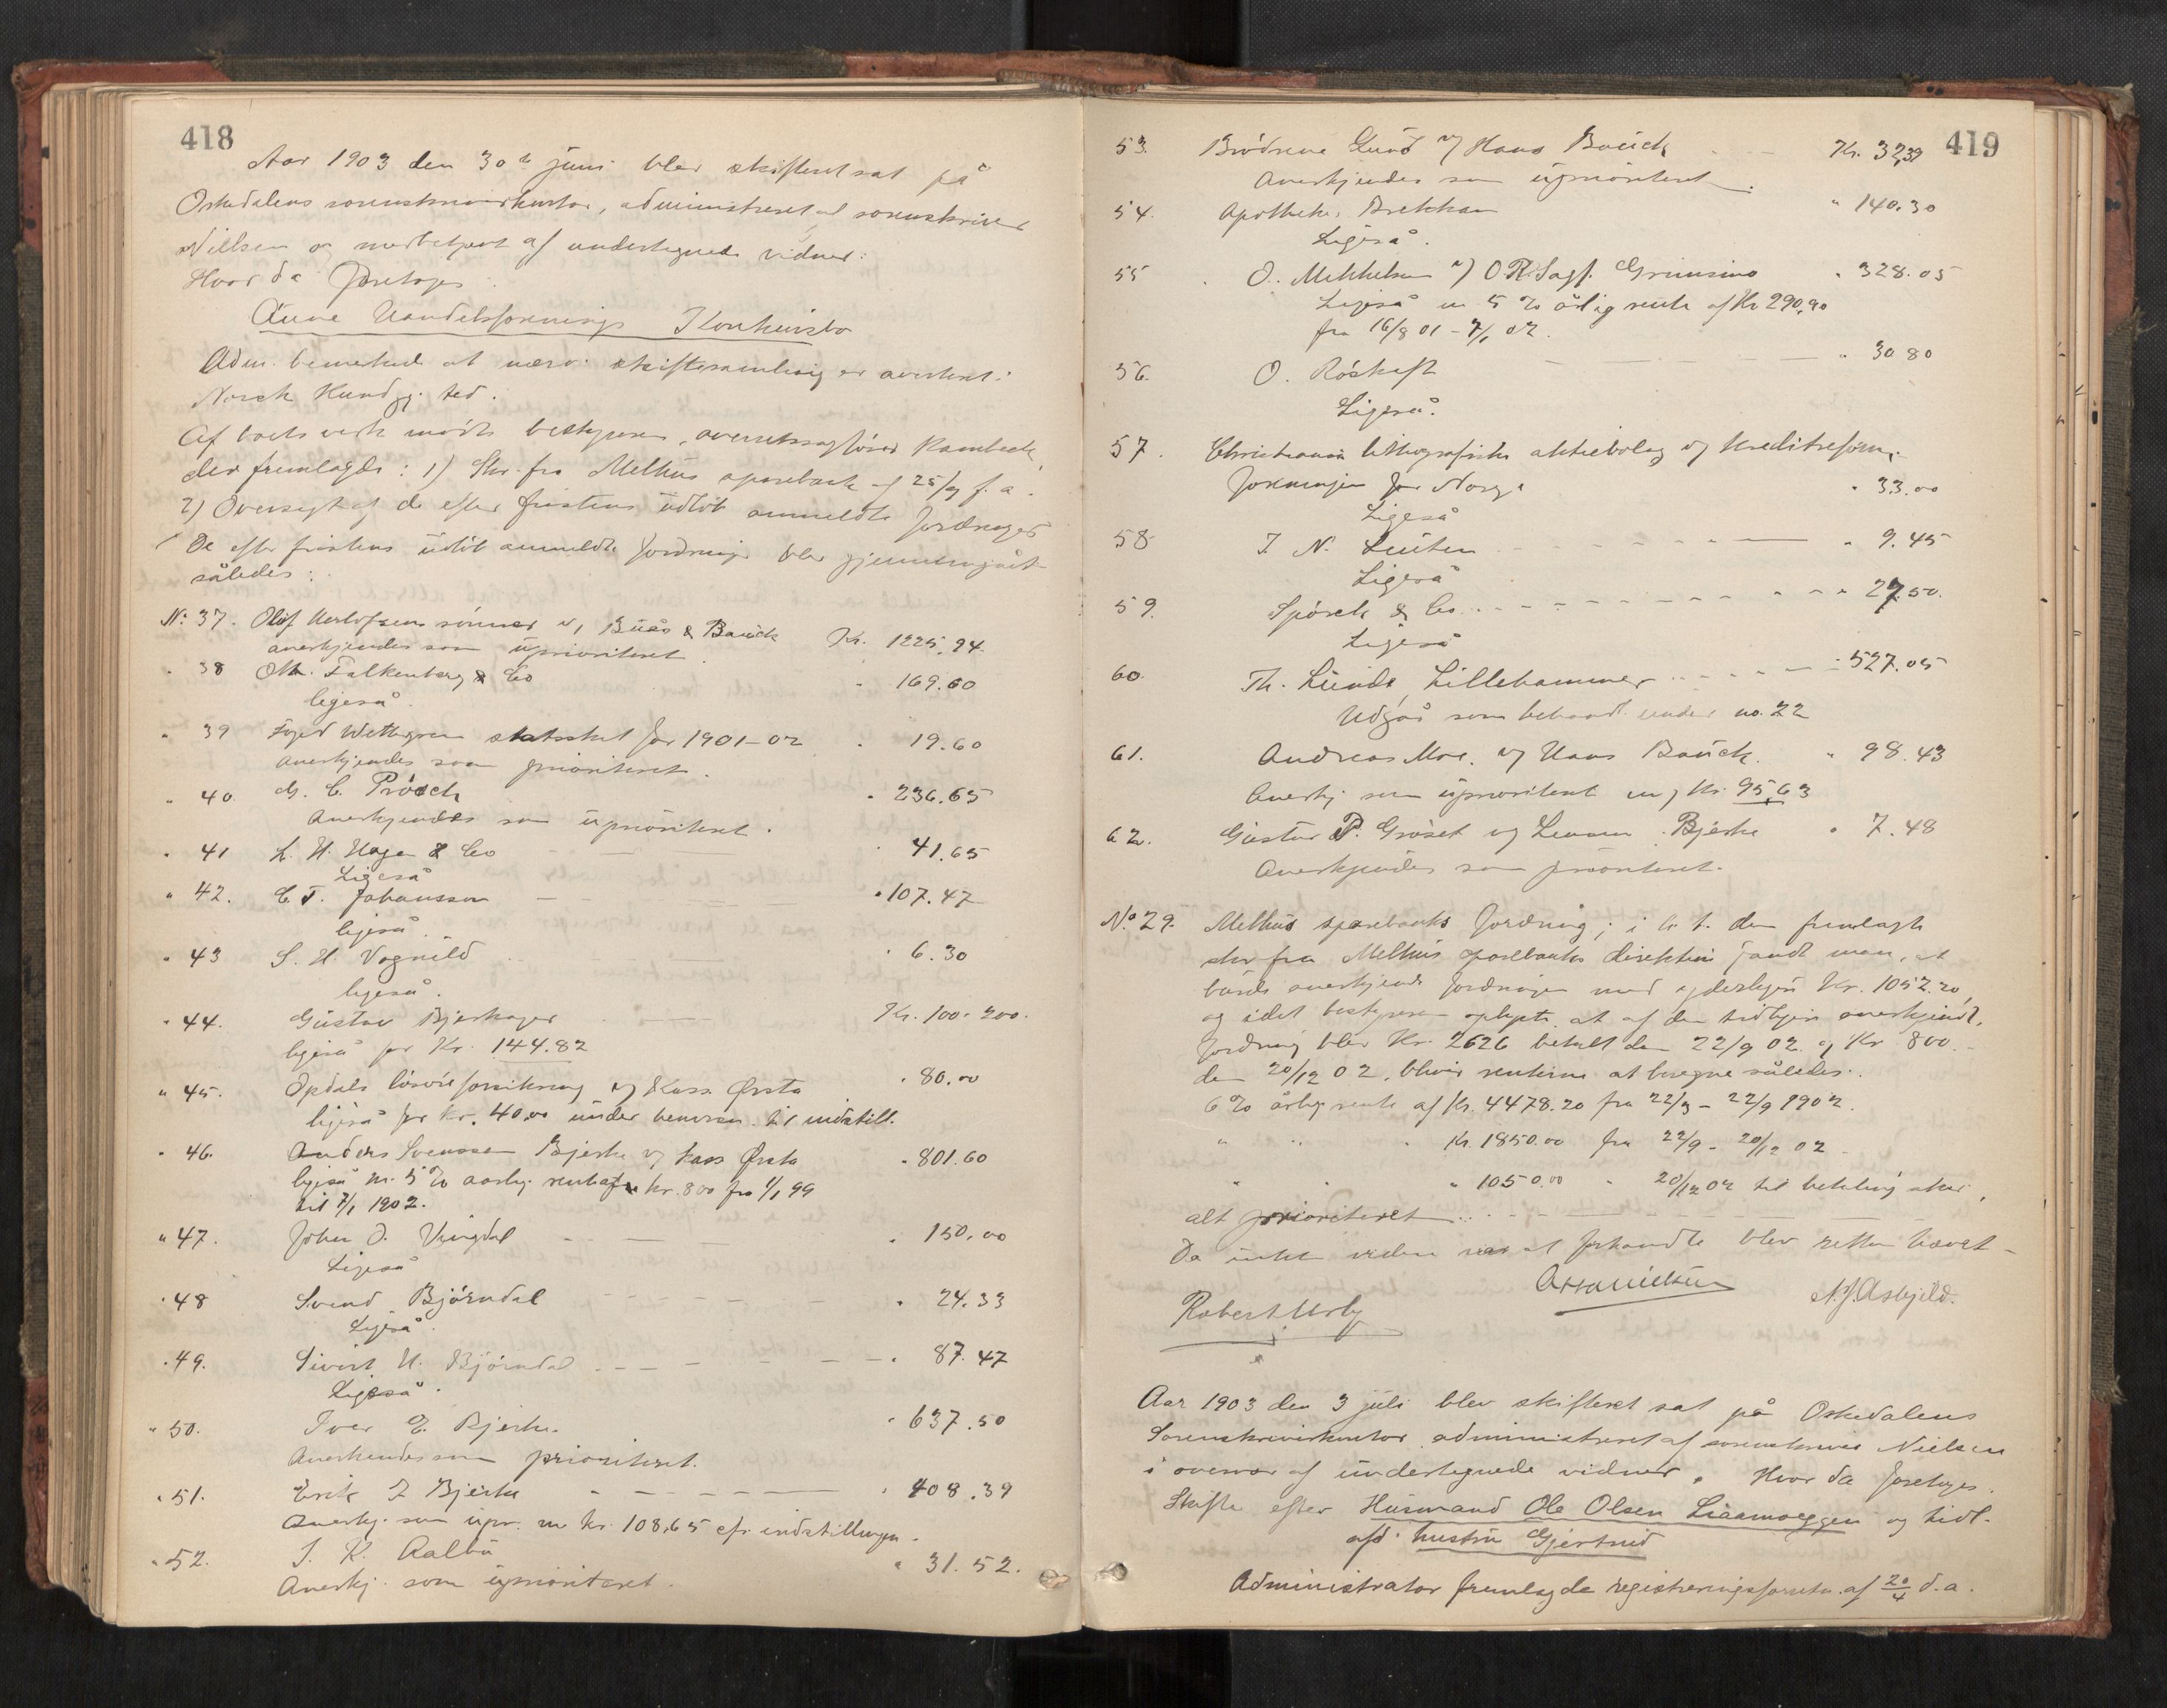 418
Aar 1903 den 30te juni blev skifteret sat på
Orkedalens sorenskriverkontor, administreret af sorenskriver
Nielsen og medbetjent af undertegnede vidner:
Hvor da foretoges
Aune Handelsforenings Konkursbo
Adm. bemerkede at nærv. skiftesamling er avertert i
Norsk Kundgj. tid.
Af boets vedk mødte bestyreren, overretssagfører Rambech,
der fremlagde: 1) Skr. fra Melhus sparebank af 25/9 f. a.
2) Oversigt af de efter fristens udløb anmeldte fordringer
De efter fristens udløb anmeldte fordringer blev gjennemgåt
således:
No 37. Oluf Herlofsens sønner v/ Buås & Bauck Kr. 1225.94
anerkjendes som uprioriteret
" 38 Oth. Falkenberg & Co " 169.60
ligeså.
" 39 Foged Wettergreen statsskat for 1901-02 " 19.60
anerkjendes som prioriteret.
" 40. G. C. Prösch " 236.65
Anerkjendes som uprioriteret.
" 41 L. H. Hagen & Co " 41.65
Ligeså
" 42. C. F. Johansson " 107.47
ligeså.
" 43 S. H. Vognild " 6.30
ligeså.
" 44. Gustav Bjerkager Kr. 100-200.
ligeså for Kr. 144.82
" 45. Opdals løsøreforsikring v/ Kass. Ørsta " 80.00
ligeså for kr. 40,00 under henvisn. til indstill.
" 46. Anders Svensson Bjerke v/ kass Ørsta " 801.60
ligeså m. 5 % aarlig rente af kr. 800 fra 1/1 99
til 7/1 1902.
" 47. John J. Vingdal " 150.00
Ligeså
" 48 Svend Björndal " 24.33
Ligeså.
" 49. Sivert H. Björndal " 87.47
Ligeså.
" 50. Iver E. Bjerke. " 637.50
Anerkendes som prioriteret.
" 51. Erik I Bjerke " 408.39
Anerkj. som upr. m kr. 108,65 cfr. indstillingen.
" 52. J. K. Aalbu " 31.52.
Anerkj. som uprioriteret.
419
53. Brödrene Lund v/ Hans Bauck Kr. 32,39
Anerkjendes som uprioriteret.
54. Apotheker Brekkan " 140.30
Ligeså.
55 O. Mikkelsen v/ O. R. Sagf. Grimsmo " 328.05
Ligeså m 5 % årlig rente af Kr 290,90
fra 16/8 01 - 7/1 02.
56. O. Röskaft " 30 80
Ligeså.
57. Christiania lithografiske aktiebolag v/ Kreditreform.
foreningen for Norge " 33.00
Ligeså
58 J. N. Lenten " 9.45
Ligeså
59. Spörck & Co. " 27.50.
Ligeså
60. Th. Lunde, Lillehammer " 527.05
Udgår som behandl. under no. 22
61. Andreas Moe. v/ Hans Bauck. " 98.43
Anerkj som uprioriteret m/ Kr. 95,63
62. Gustav P. Gröset v/ Bjerke " 7.48
Anerkjendes som prioriteret.
No. 29. Melhus sparebanks fordring; i h. t. den fremlagte
skr fra Melhus sparebanks direktion fandt man, at
burde anerkjende fordringen med yderligere Kr. 1052.20,
og idet bestyreren oplyste at af den tidligere anerkjendte
fordring blev Kr. 2626 betalt den 22/9 02. og Kr 800.-
den 20/12 02. bliver renterne at beregne således:
6 % årlig rente af Kr. 4478.20 fra 22/3 - 22/9 1902.
" " " Kr. 1850.00 fra 22/9 - 20/12 02
" " " 1050.00 " 20/12 02 til betaling sker,
alt prioriteret
Da intet videre var at forhandle blev retten hævet
Robert Urby N. J. Asbjeld.
Aar 1903 den 3 juli blev skifteret sat på Orkedalens
Sorenskriverkontor administreret af sorenskriver Nielsen
i overvær af undertegnede vidner. Hvor da foretoges.
Skifte efter Husmand Ole Olsen Liaamoeggen og tidl.
afd. hustru Gjertrud
Administrator fremlagde registreringsforretn. af 20/4 d. a.